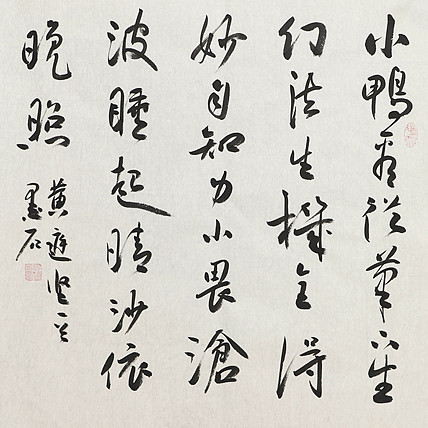 小鴨看從筆下生
幻法生機全得
妙自知力小畏滄
波睡起晴沙依
晚照
黄庭坚
墨石